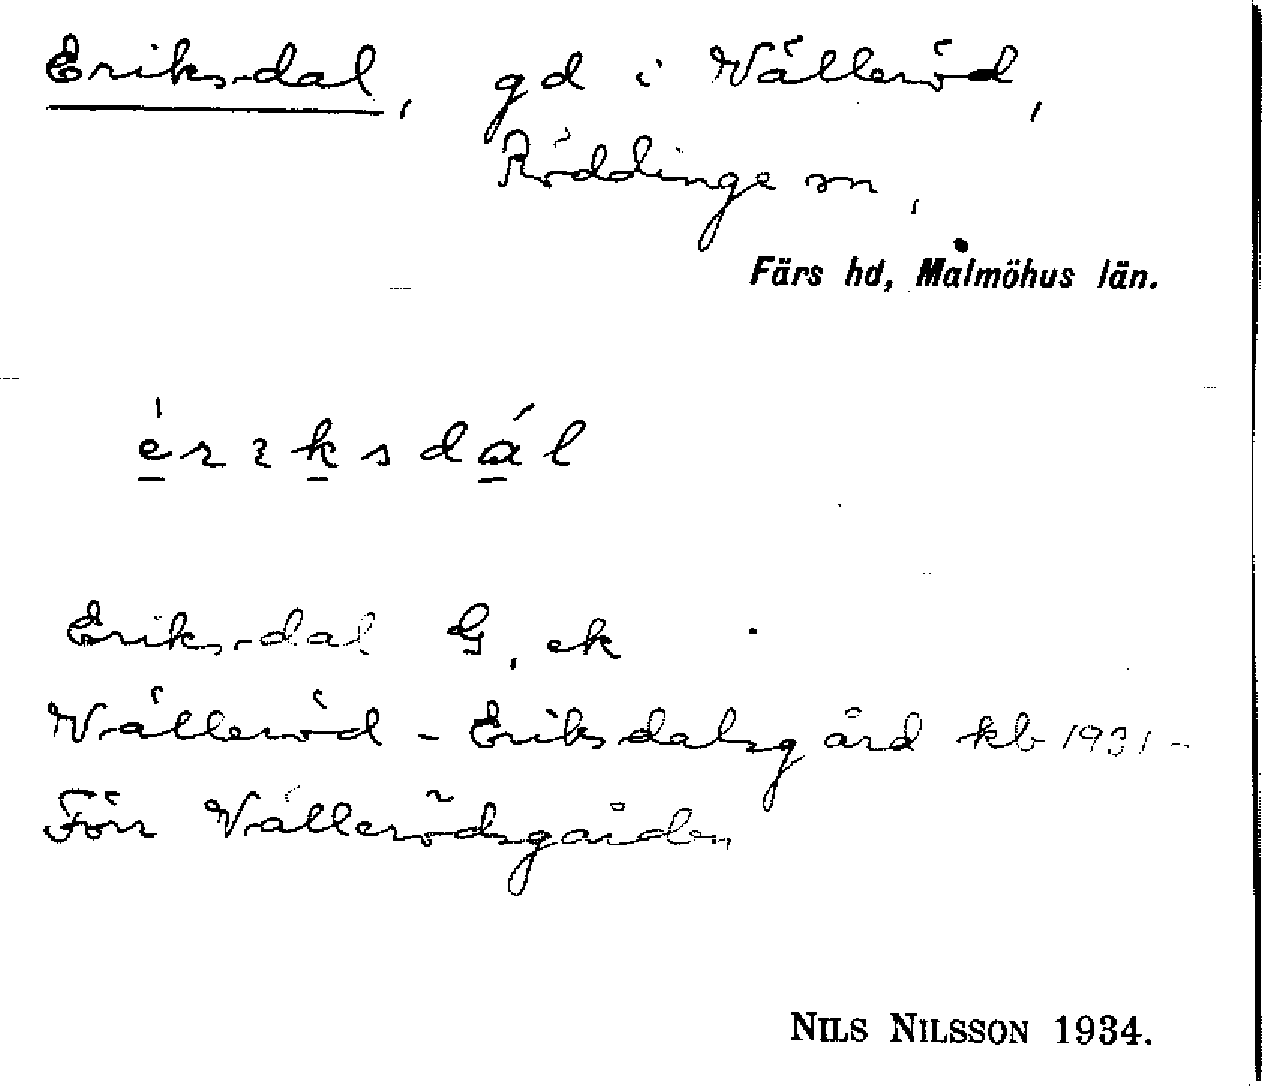 Eriksdal, gd i Välleröd,
Röddinge sn,
Färs hd, Malmöhus län.
èrıksdál
Eriksdal G, ek
Välleröd - Eriksdalsgård kb 1931-
Förr Vällerödsgården
NILS NILSSON 1934.